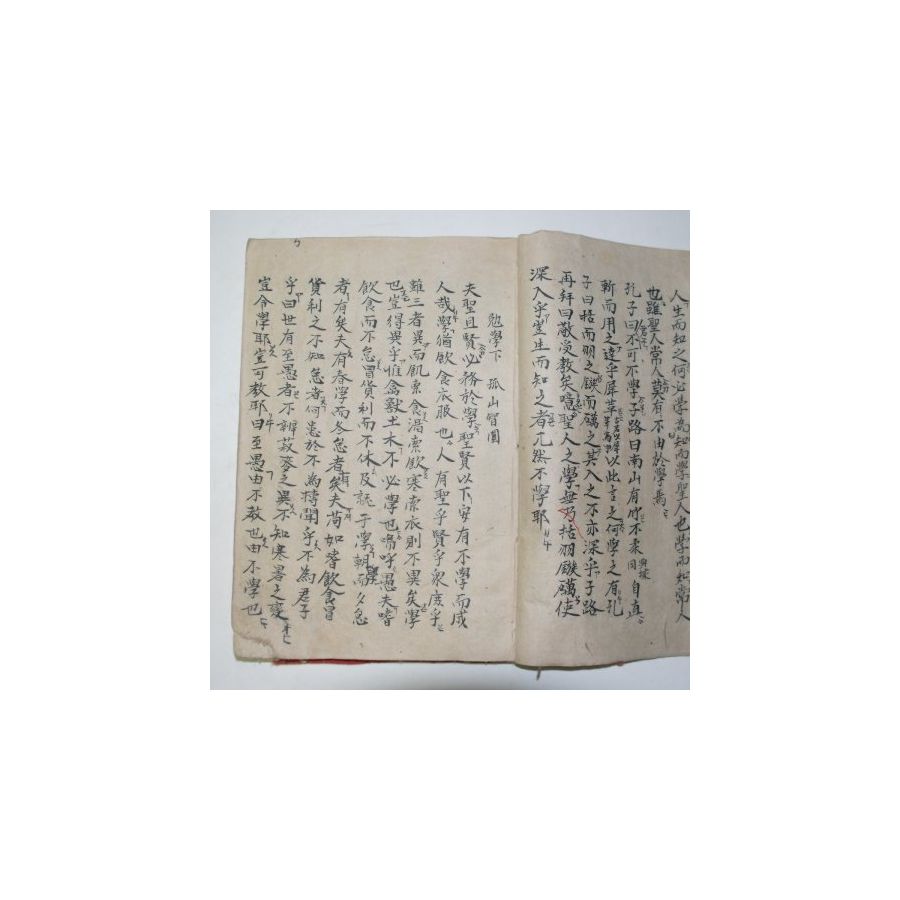 人生而知之何必學爲知而學聖人也學而知常人
也雖聖人常人莫有不由於學焉
孔子曰不可不學子路曰南山有竹不柔自直
斬而用之達乎犀革以此言之何學之有孔
子曰括而羽之鏃而礪之其入之不亦深乎子路
再拜曰敬受教矣噫聖人之學無乃括羽鏃礪使
深入乎豈生而知之者兀然不學耶
勉學下 孤山智圓
夫聖且賢必務於學聖賢以下安有不學而成
人哉學猶飮食衣服也人有聖乎賢乎衆庶乎
雖三者異而飢索食渴索飮寒索衣則不異矣學
也豈得異乎惟禽獸土木不必學也嗚呼愚夫嗜
飮食而不怠冒貨利而不休及就于學朝而夕怠
者有矣夫有春學而冬怠者矣夫苟如嗜飮食冒
貨利之不知怠者何患於不爲博聞乎不爲君子
乎曰世有至愚者不辨菽麥之異不知寒暑之變
豈令學耶豈可教耶曰至愚由不教也由不學也